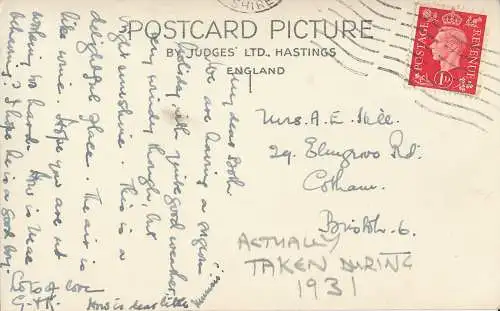 SHIRE
POSTCARD PICTURE
BY JUDGES' LTD., HASTINGS
ENGLAND
POSTAGE
REVENUE
1D
My dear Both
We are having a
holiday, with quite good weather,
very windy though, but
bright sunshine. This is a
delightful place. The air is
like wine. Hope you are not
working too hard. How is
behaving? I hope he is a good boy.
Lots of love
G.
How is dear little
Mrs. A. E. Hill.
29. Elmgrove Rd.
Cotham.
Bristol. 6.
ACTUALLY
TAKEN DURING
1931